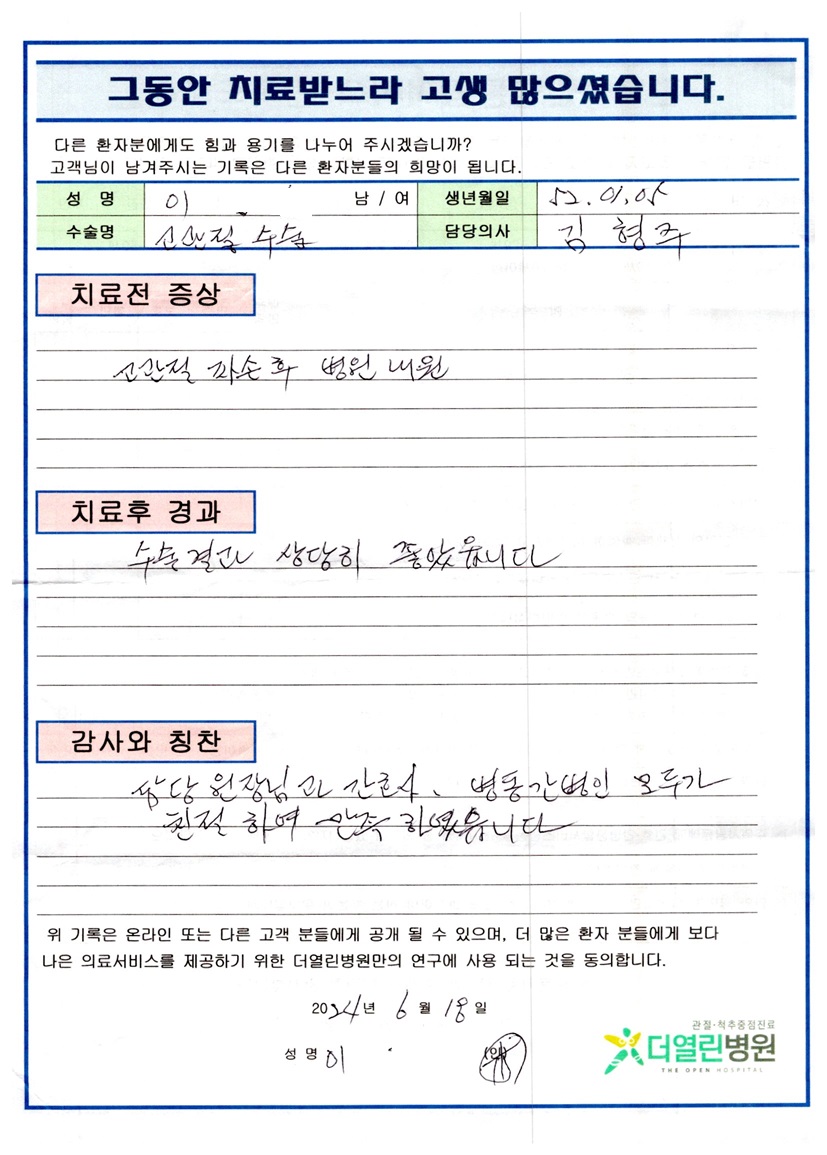 그동안 치료받느라 고생 많으셨습니다.
다른 환자분에게도 힘과 용기를 나누어 주시겠습니까?
고객님이 남겨주시는 기록은 다른 환자분들의 희망이 됩니다.
성 명 이 남 / 여 생년월일 52. 01. 05
수술명 고관절 수술 담당의사 김 형주
치료전 증상
고관절 파손 후 병원 내원
치료후 경과
수술결과 상당히 좋았읍니다
감사와 칭찬
원장님과 간호사, 병동간병인 모두가
친절 하여 만족 하였읍니다
위 기록은 온라인 또는 다른 고객 분들에게 공개 될 수 있으며, 더 많은 환자 분들에게 보다
나은 의료서비스를 제공하기 위한 더열린병원만의 연구에 사용 되는 것을 동의합니다.
2024년 6 월 18 일
성 명 이 (인)
관절·척추중점진료
더열린병원
THE OPEN HOSPITAL